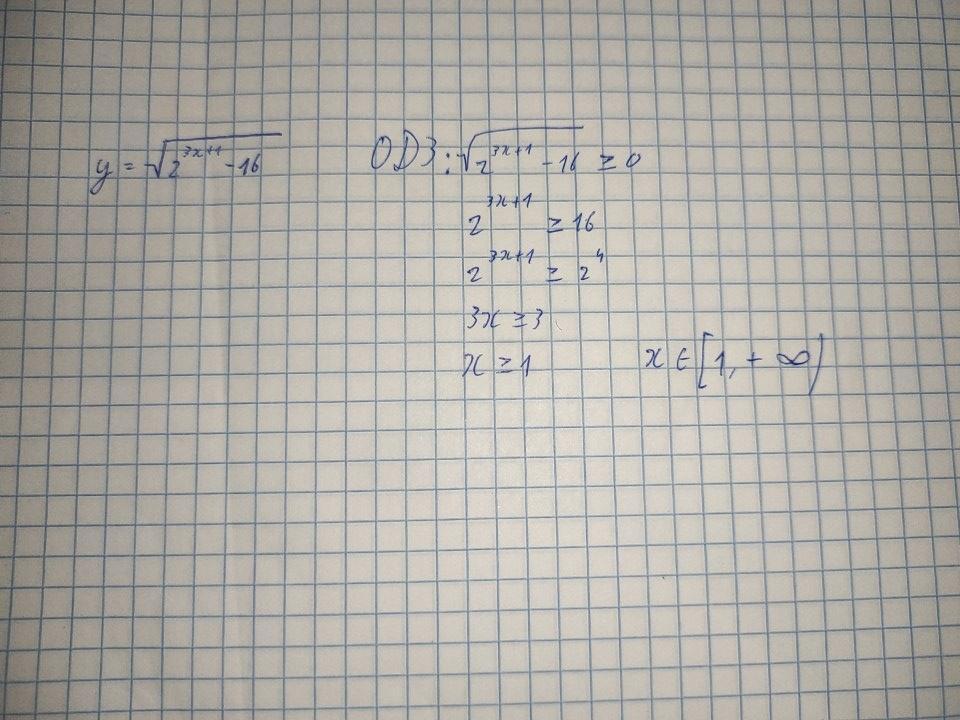 y = √(2^(3x+1) - 16)
ОДЗ: √(2^(3x+1) - 16) ≥ 0
2^(3x+1) ≥ 16
2^(3x+1) ≥ 2^4
3x ≥ 3
x ≥ 1
x ∈ [1, + ∞)